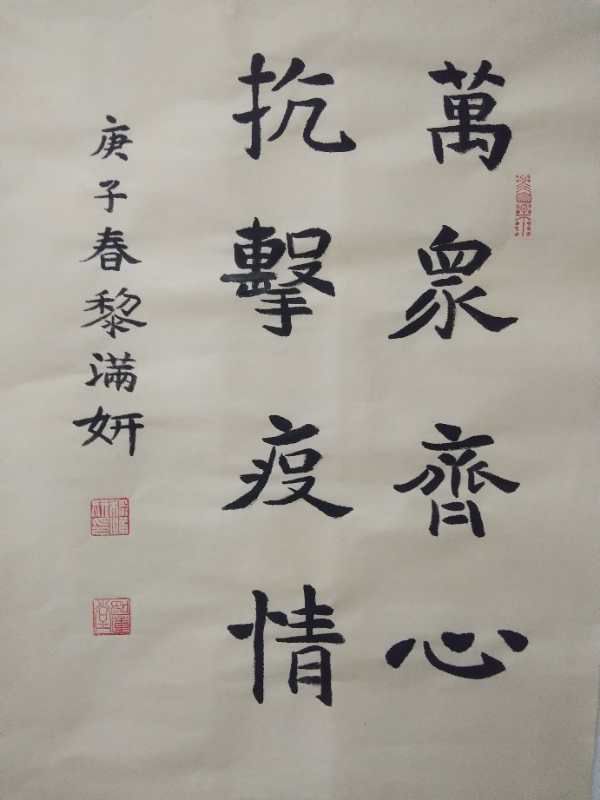 萬眾齊心
抗擊疫情
庚子春黎满妍